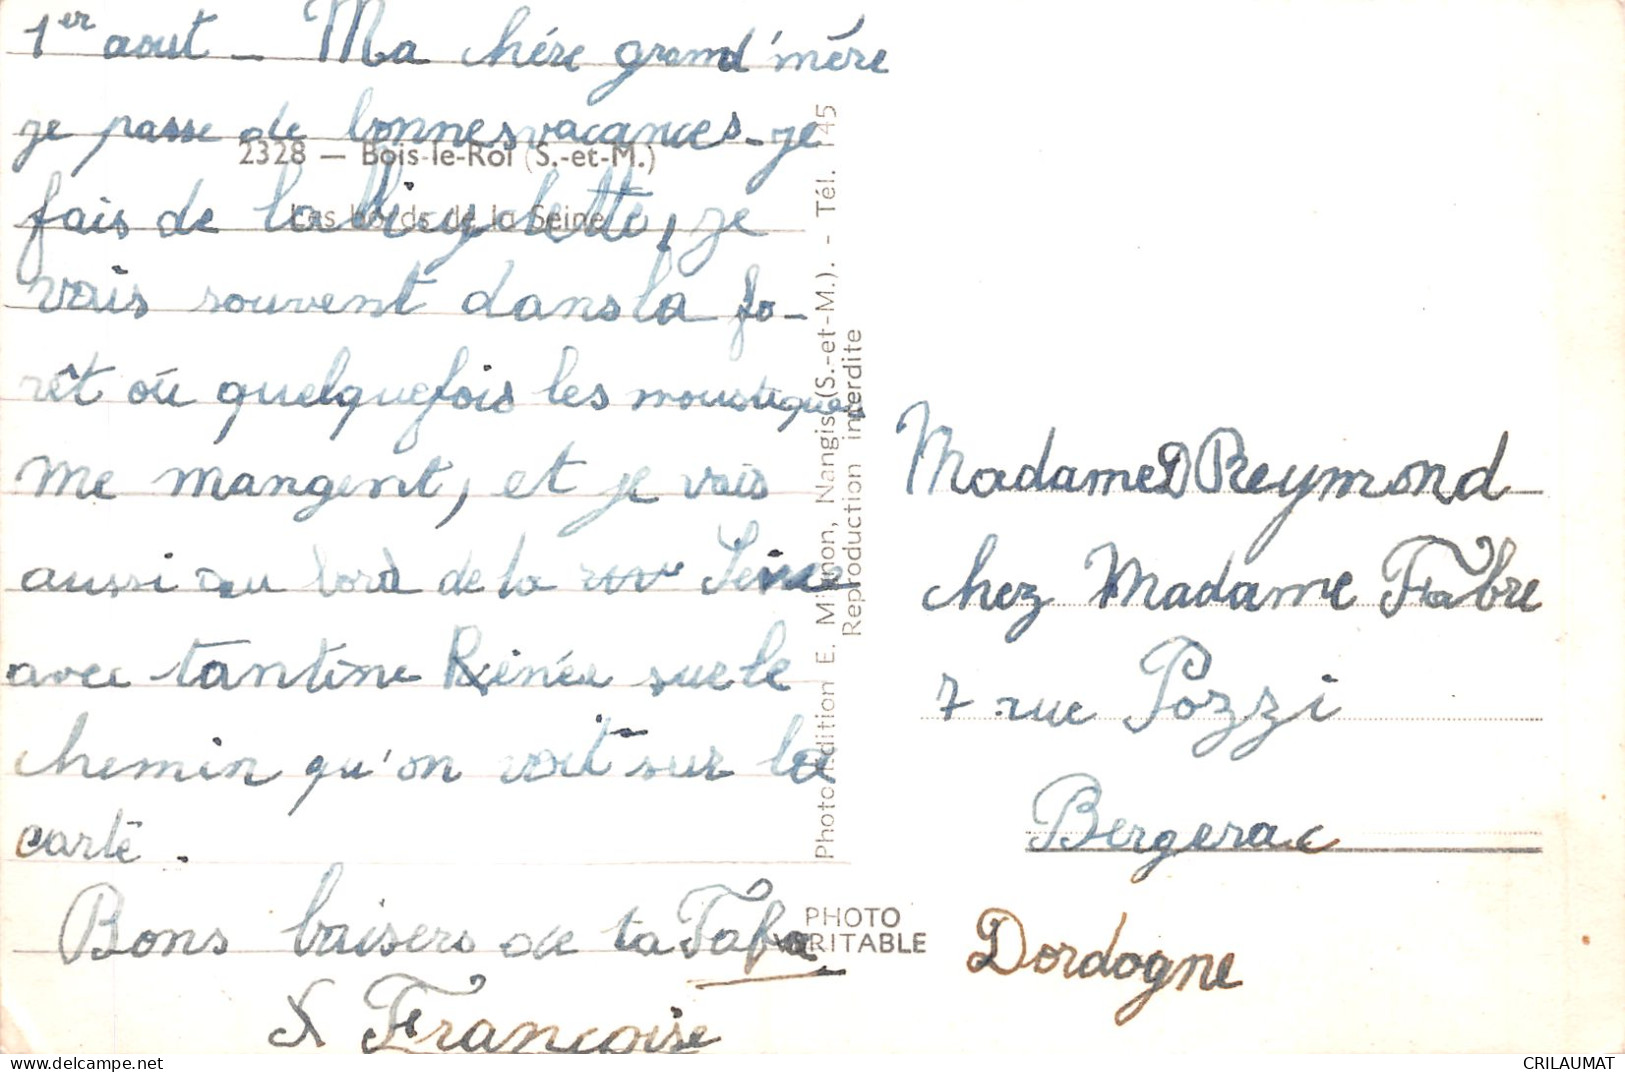 1er aout - Ma chére grand'mére
je passe de bonnes vacances - je
fais de la bicyclette, je
vais souvent dans la fo-
rêt où quelquefois les moustiques
me mangent, et je vais
aussi au bord de la Seine
avec tantine Rénée sur le
chemin qu'on voit sur la
carte.
Bons baisers de ta Fafa
Françoise
2328 — Bois-le-Roi (S.-et-M.)
Les bords de la Seine
Photo-Edition E. Mignon, Nangis (S.-et-M.). - Tél. 145
Reproduction interdite
PHOTO
VÉRITABLE
Madame D Reymond
chez Madame Fabre
7 rue Pozzi
Bergerac
Dordogne
delcampe.net
CRILAUMAT